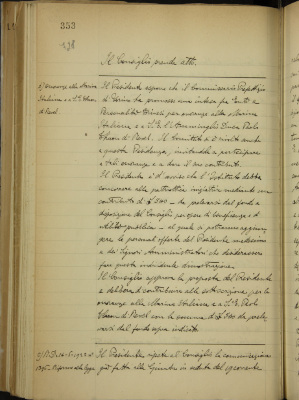 353
138
Il Consiglio prende atto.
Onoranze alla Marina Il Presidente espone che il Commissario Prefettizio
Italiana e a S.E. Thaon di Torino ha promosso una intesa fra Enti e
di Revel Personalità per onoranze alla Marina
Italiana e a S.E. l'Ammiraglio Duca Paolo
Thaon di Revel. Il Comitato si è rivolto anche
a questa Presidenza, invitandola a partecipare
a tali onoranze e a dare il suo contributo.
Il Presidente è d'avviso che l'Istituto debba
concorrere alla patriottica iniziativa mediante un
contributo di £ 500 - da prelevarsi dal fondo a
disposizione del Consiglio per spese di beneficenza e di
al quale si potranno aggiun-
gere le personali offerte del Presidente medesimo
e dei Signori Amministratori che desiderassero
fare questa dimostrazione.
Il Consiglio approva la proposta del Presidente
e delibera di contribuire alla sottoscrizione per le
onoranze alla Marina Italiana e a S.E. Paolo
Thaon di Revel con la somma di £ 500 da prele-
varsi dal fondo sopra indicato.
Il Presidente ripete al Consiglio la comunicazione
già fatta alla Giunta in seduta del